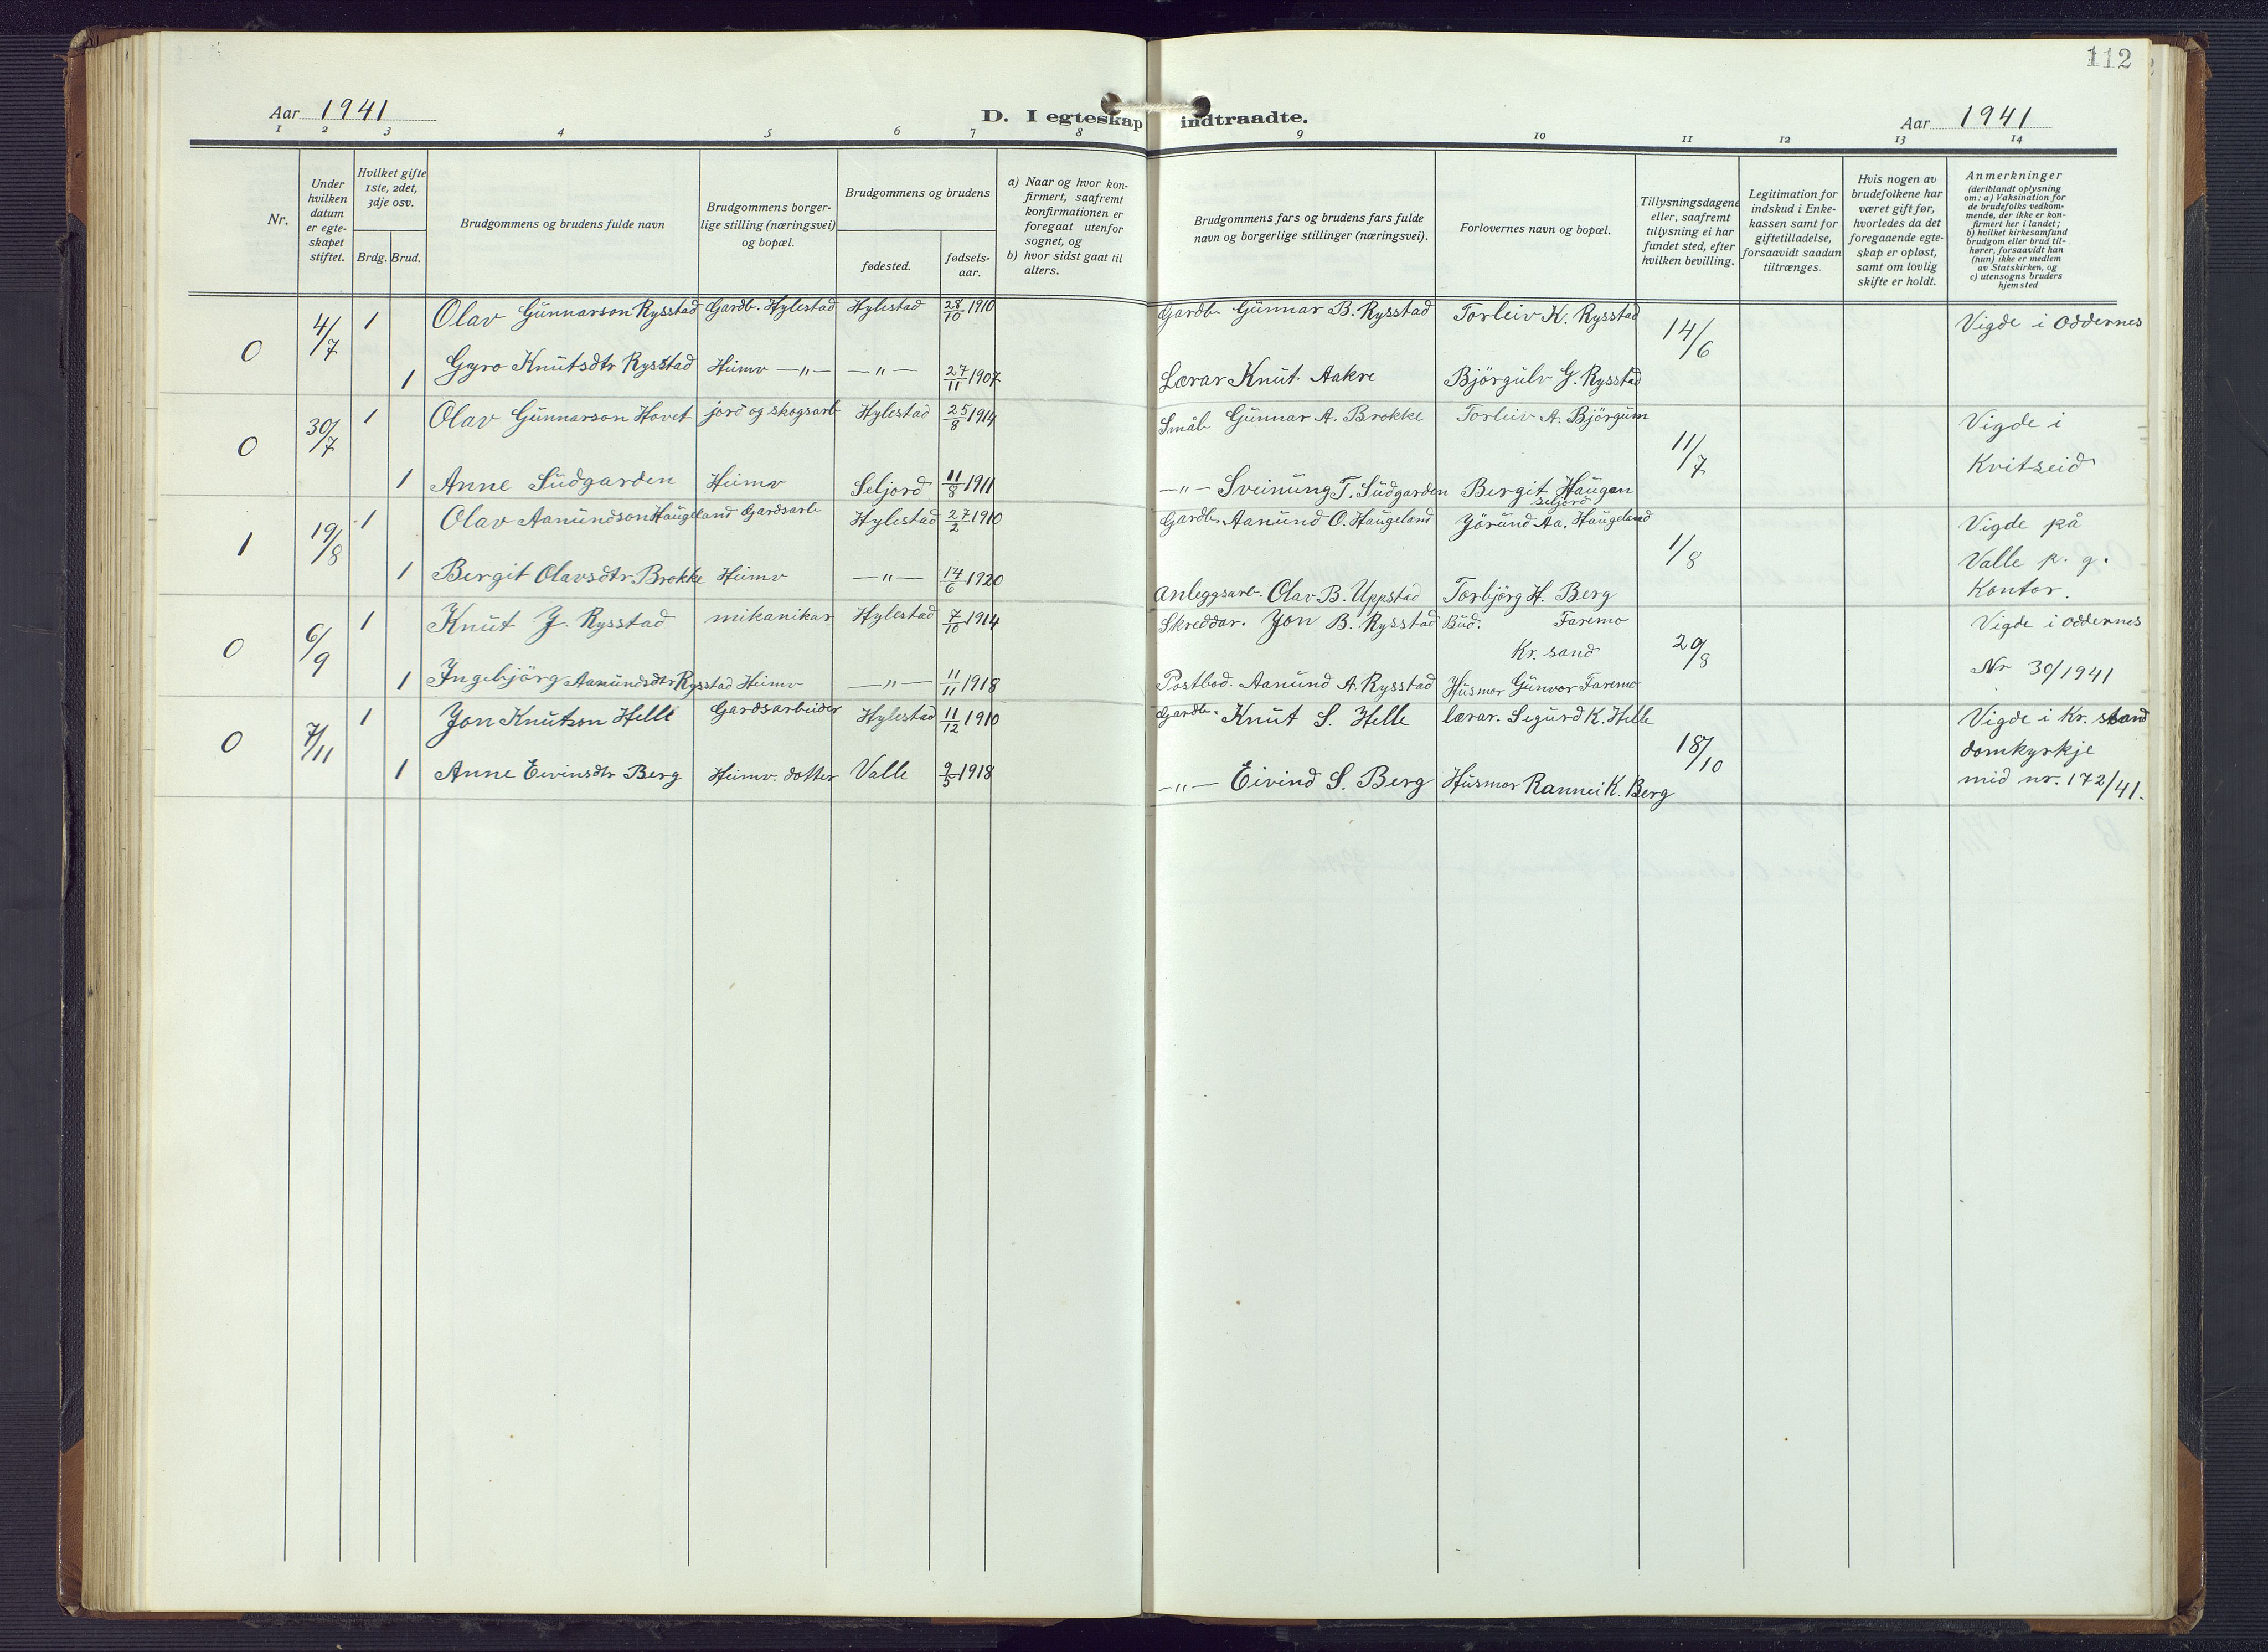 112
Aar 1941
D. I egteskap indtraadte.
Aar 1941
1 2 3 4 5 6 7 8 9 10 11 12 13 14
Nr.
Under hvilken datum er egteskapet stiftet.
Hvilket gifte 1ste, 2det, 3dje osv.
Brdg. Brud.
Brudgommens og brudens fulde navn
Brudgommens borgerlige stilling (næringsvei) og bopæl.
Brudgommens og brudens
fødested.
fødselsaar.
a) Naar og hvor konfirmert, saafremt konfirmationen er foregaat utenfor sognet, og
b) hvor sidst gaat til alters.
Brudgommens fars og brudens fars fulde navn og borgerlige stillinger (næringsvei).
Forlovernes navn og bopæl.
Tillysningsdagene eller, saafremt tillysning ei har fundet sted, efter hvilken bevilling.
Legitimation for indskud i Enkekassen samt for giftetilladelse, forsaavidt saadan tiltrænges.
Hvis nogen av brudefolkene har været gift før, hvorledes da det foregaaende egteskap er opløst, samt om lovlig skifte er holdt.
Anmerkninger
(deriblandt oplysning om: a) Vaksination for de brudefolks vedkommende, der ikke er konfirmert her i landet; b) hvilket kirkesamfund brudgom eller brud tilhører, forsaavidt han (hun) ikke er medlem av Statskirken, og c) utensogns bruders hjemsted
0 4/7 1 Olav Gunnarson Rysstad Gardb. Hylestad Hylestad 28/10 1910 Gardb. Gunnar B. Rysstad Torleiv K. Rysstad 14/6 Vigde i Oddernes
1 Gyro Knutsdtr Rysstad Heimv —"— —"— 27/11 1907 Lærar Knut Aakre Björgulv G. Rysstad
0 30/7 1 Olav Gunnarson Hovet jord og skogsarb Hylestad 25/8 1914 Småb Gunnar A. Brokke Torleiv A. Björgum 11/7 Vigde i
Kvitseid
1 Anne Sudgarden Heimv Seljord 11/8 1911 —"— Sveinung T. Sudgarden Bergit Haugen
Seljord
1 19/8 1 Olav Aanundson Haugeland Gardsarb Hylestad 27/2 1910 Gardb. Aanund O. Haugeland Jörund Aa. Haugeland 1/8 Vigde på
Valle p. g.
Kontor.
1 Bergit Olavsdtr Brokke Heimv —"— 14/6 1920 Anleggsarb. Olav B. Uppstad Torbjörg H. Berg
0 6/9 1 Knut J. Rysstad mikanikar Hylestad 7/10 1914 Skreddar. Jon B. Rysstad Bud. Faremo
Kr. sand 29/8 Vigde i Oddernes
Nr 30/1941
1 Ingebjörg Aanundsdtr Rysstad Heimv —"— 11/11 1918 Postbod. Aanund A. Rysstad Husmor Gunvor Faremo
0 7/11 1 Jon Knutson Helle Gardsarbeider Hylestad 11/12 1910 Gardb. Knut S. Helle lærar. Segurd K. Helle 18/10 Vigde i Kr. stand
domkyrkje
mid nr. 172/41.
1 Anne Eivinsdtr Berg Heimv. dotter Valle 9/5 1918 —"— Eivind S. Berg Husmor Rannei K. Berg